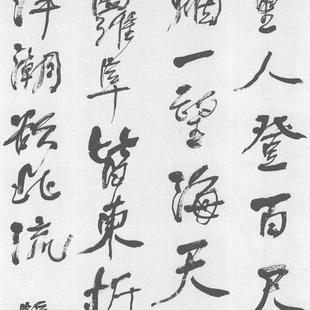 里人登百尺
烟一望海天
羅阜皆東折
洋潮欲北流